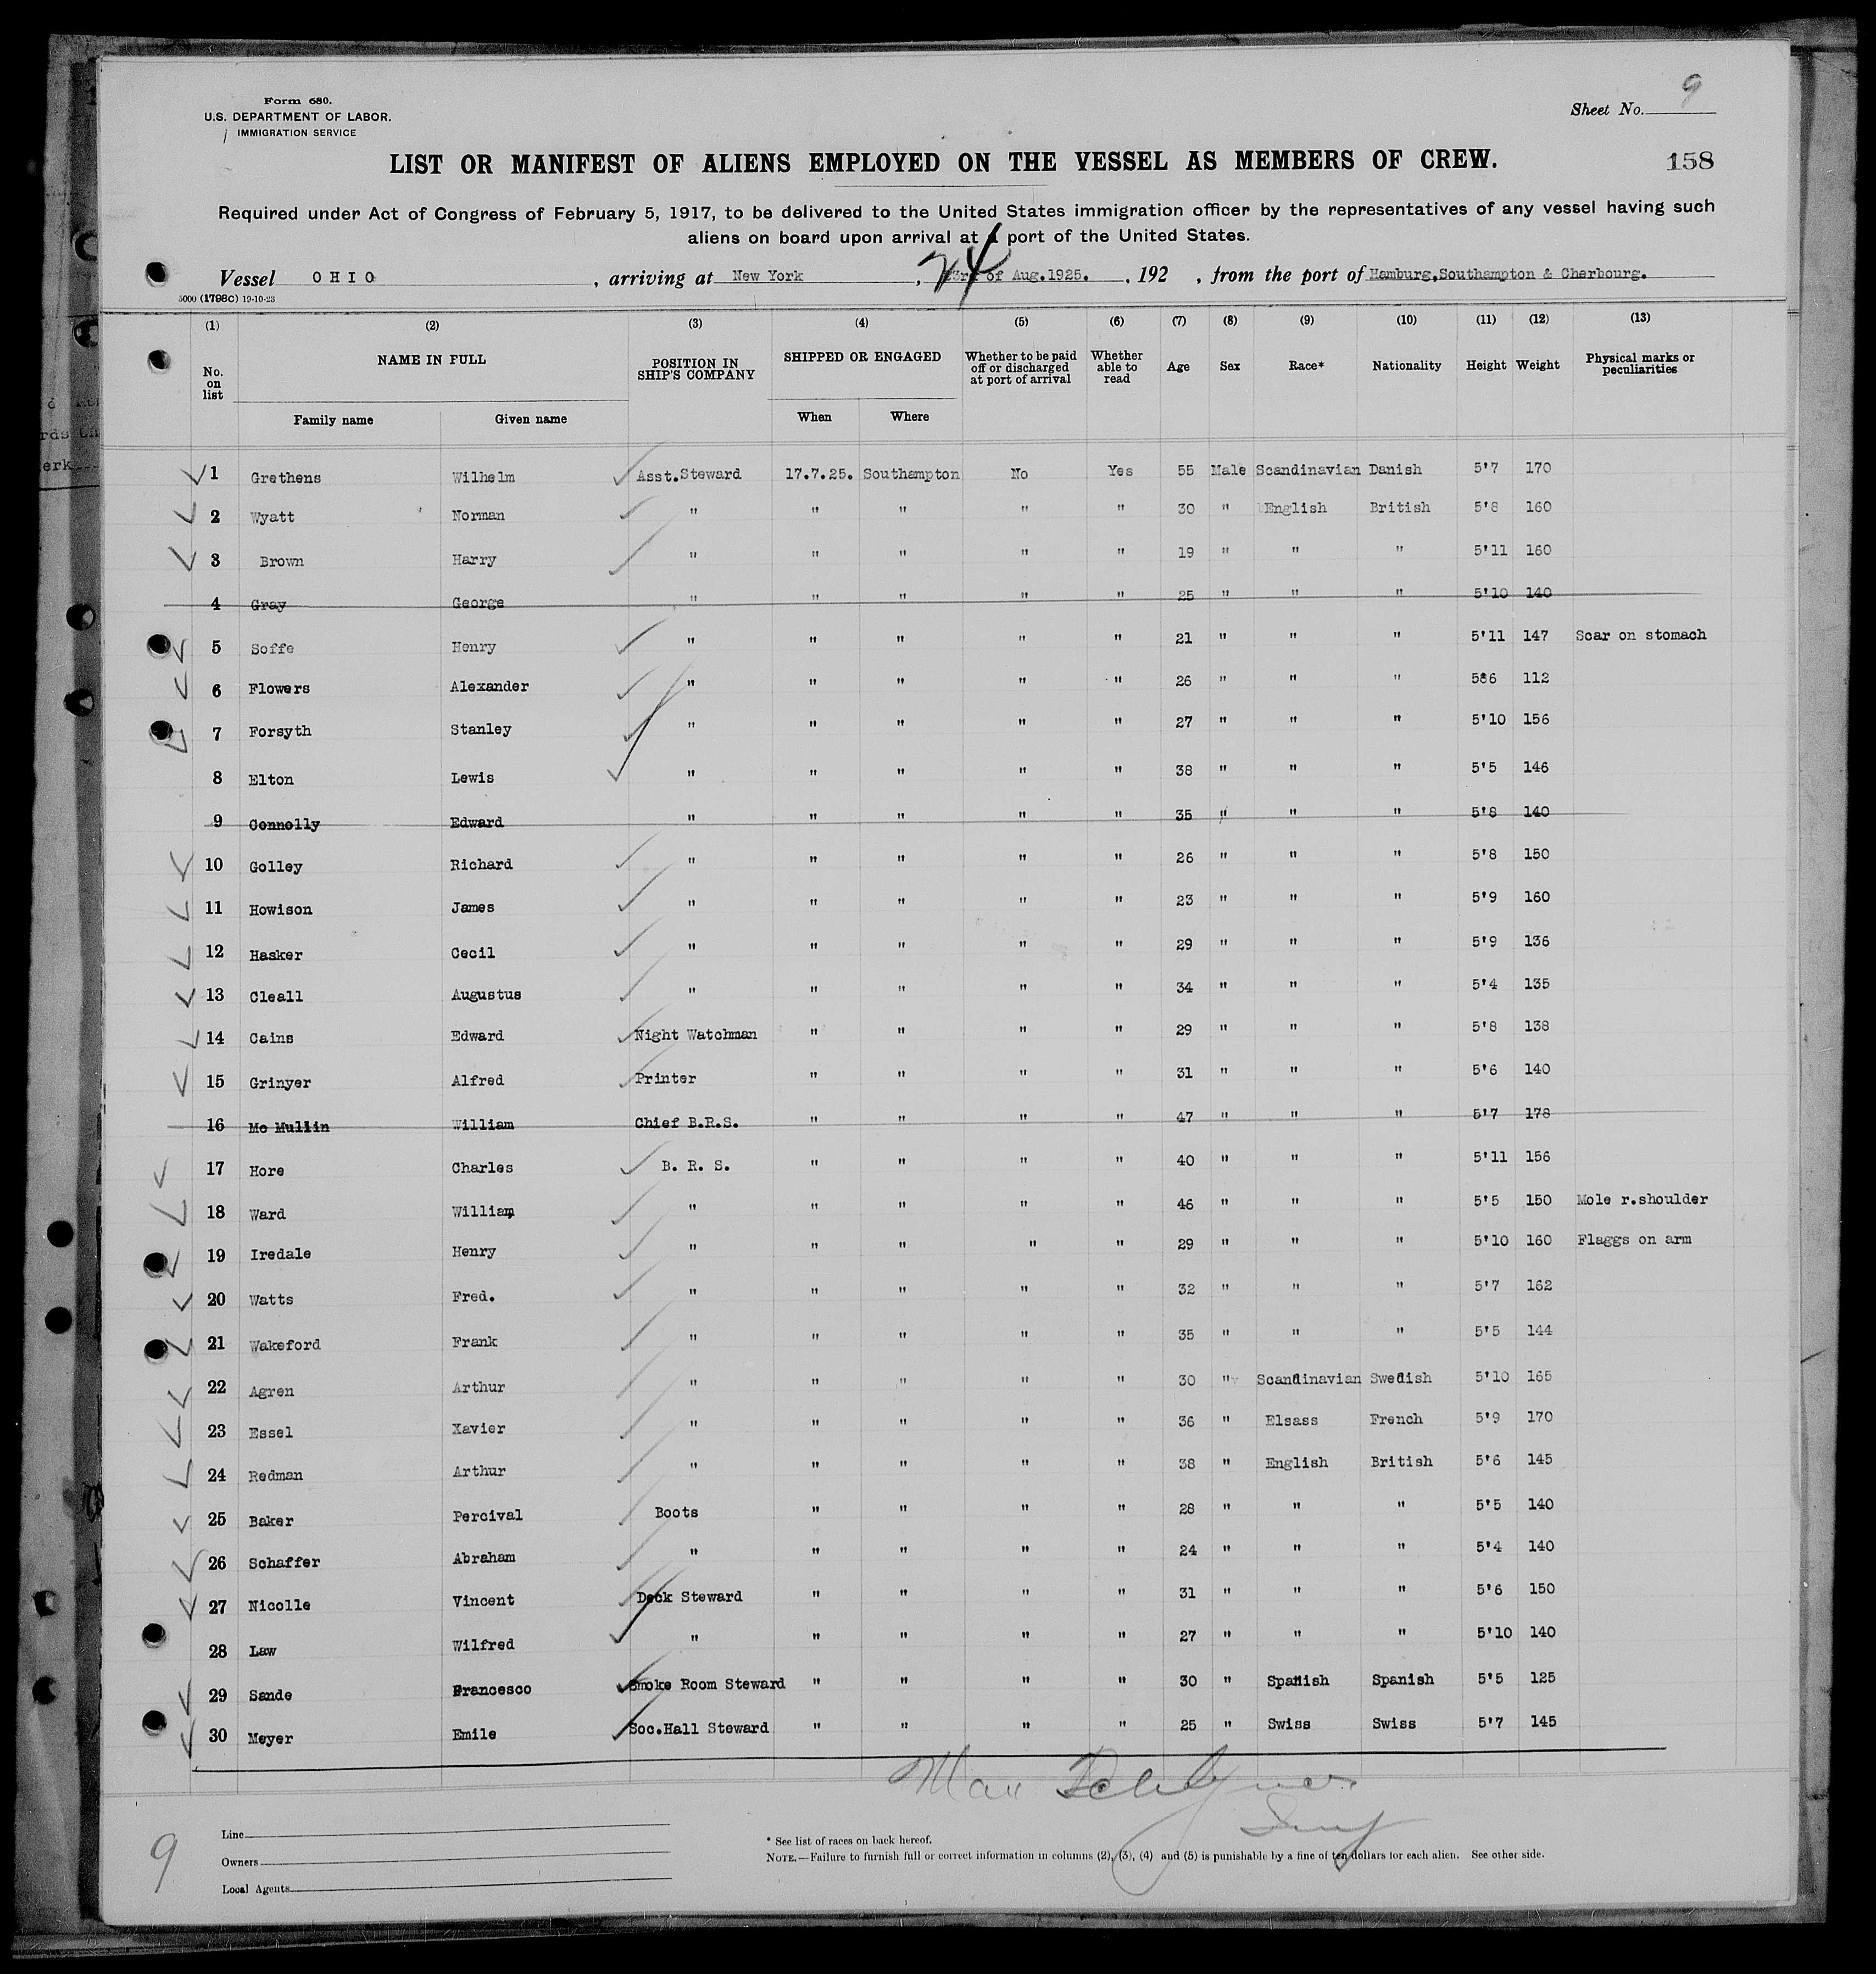 Form 680.
U.S. DEPARTMENT OF LABOR.
IMMIGRATION SERVICE
Sheet No. 9
LIST OR MANIFEST OF ALIENS EMPLOYED ON THE VESSEL AS MEMBERS OF CREW.
158
Required under Act of Congress of February 5, 1917, to be delivered to the United States immigration officer by the representatives of any vessel having such
aliens on board upon arrival at a port of the United States.
Vessel OHIO, arriving at New York, 24 3rd of Aug.1925., 192 , from the port of Hamburg,Southampton & Cherbourg.
5000 (1798C) 19-10-23
(1) (2) (3) (4) (5) (6) (7) (8) (9) (10) (11) (12) (13)
No. on list NAME IN FULL POSITION IN SHIP'S COMPANY SHIPPED OR ENGAGED Whether to be paid off or discharged at port of arrival Whether able to read Age Sex Race* Nationality Height Weight Physical marks or peculiarities
Family name Given name When Where
1 Grethens Wilhelm Asst.Steward 17.7.25. Southampton No Yes 55 Male Scandinavian Danish 5'7 170
2 Wyatt Norman " " " " " 30 " English British 5'8 160
3 Brown Harry " " " " " 19 " " " 5'11 160
4 Gray George " " " " " 25 " " " 5'10 140
5 Soffe Henry " " " " " 21 " " " 5'11 147 Scar on stomach
6 Flowers Alexander " " " " " 26 " " " 586 112
7 Forsyth Stanley " " " " " 27 " " " 5'10 156
8 Elton Lewis " " " " " 38 " " " 5'5 146
9 Connolly Edward " " " " " 35 " " " 5'8 140
10 Golley Richard " " " " " 26 " " " 5'8 150
11 Howison James " " " " " 23 " " " 5'9 160
12 Hasker Cecil " " " " " 29 " " " 5'9 136
13 Cleall Augustus " " " " " 34 " " " 5'4 135
14 Cains Edward Night Watchman " " " " 29 " " " 5'8 138
15 Grinyer Alfred Printer " " " " 31 " " " 5'6 140
16 Mc Mullin William Chief B.R.S. " " " " 47 " " " 5'7 178
17 Hore Charles B. R. S. " " " " 40 " " " 5'11 156
18 Ward William " " " " " 46 " " " 5'5 150 Mole r.shoulder
19 Iredale Henry " " " " " 29 " " " 5'10 160 Flaggs on arm
20 Watts Fred. " " " " " 32 " " " 5'7 162
21 Wakeford Frank " " " " " 35 " " " 5'5 144
22 Agren Arthur " " " " " 30 " Scandinavian Swedish 5'10 165
23 Essel Xavier " " " " " 36 " Elsass French 5'9 170
24 Redman Arthur " " " " " 38 " English British 5'6 145
25 Baker Percival Boots " " " " 28 " " " 5'5 140
26 Schaffer Abraham " " " " " 24 " " " 5'4 140
27 Nicolle Vincent Deck Steward " " " " 31 " " " 5'6 150
28 Law Wilfred " " " " " 27 " " " 5'10 140
29 Sande Francesco Smoke Room Steward " " " " 30 " Spanish Spanish 5'5 125
30 Meyer Emile Soc.Hall Steward " " " " 25 " Swiss Swiss 5'7 145
Max
Line
Owners
Local Agents
9
* See list of races on back hereof.
NOTE.—Failure to furnish full or correct information in columns (2), (3), (4) and (5) is punishable by a fine of ten dollars for each alien. See other side.